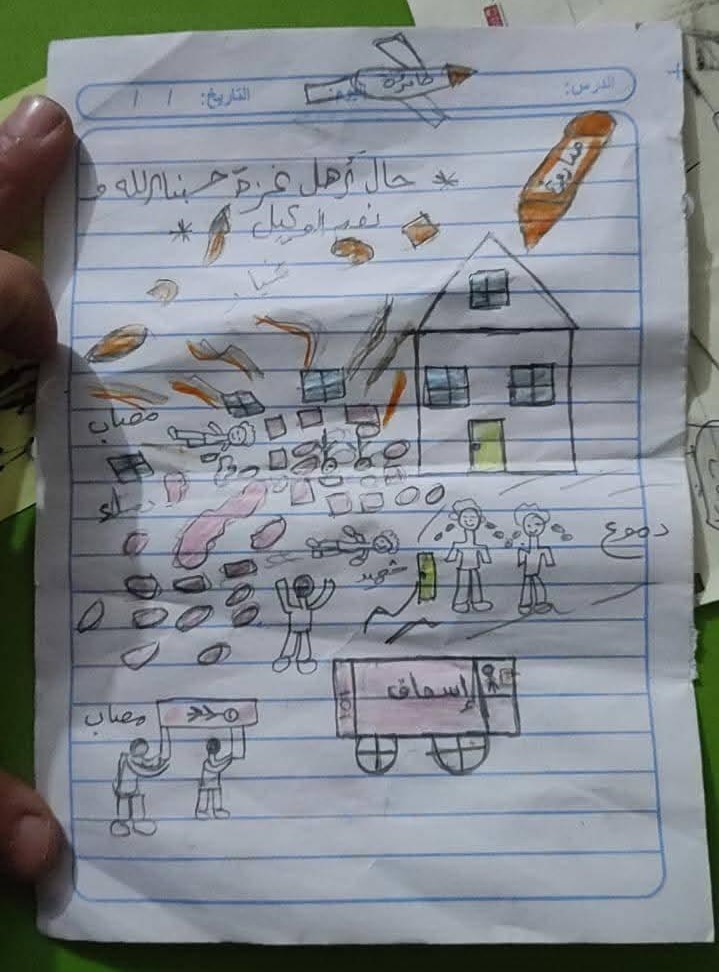 الدرس: اليوم: التاريخ: / /
طائرة
صاروخ
* حال أهل غزة حسبنا الله و
نعم الوكيل *
مصاب
دماء
دموع
شهيد
إسعاف
101
مصاب